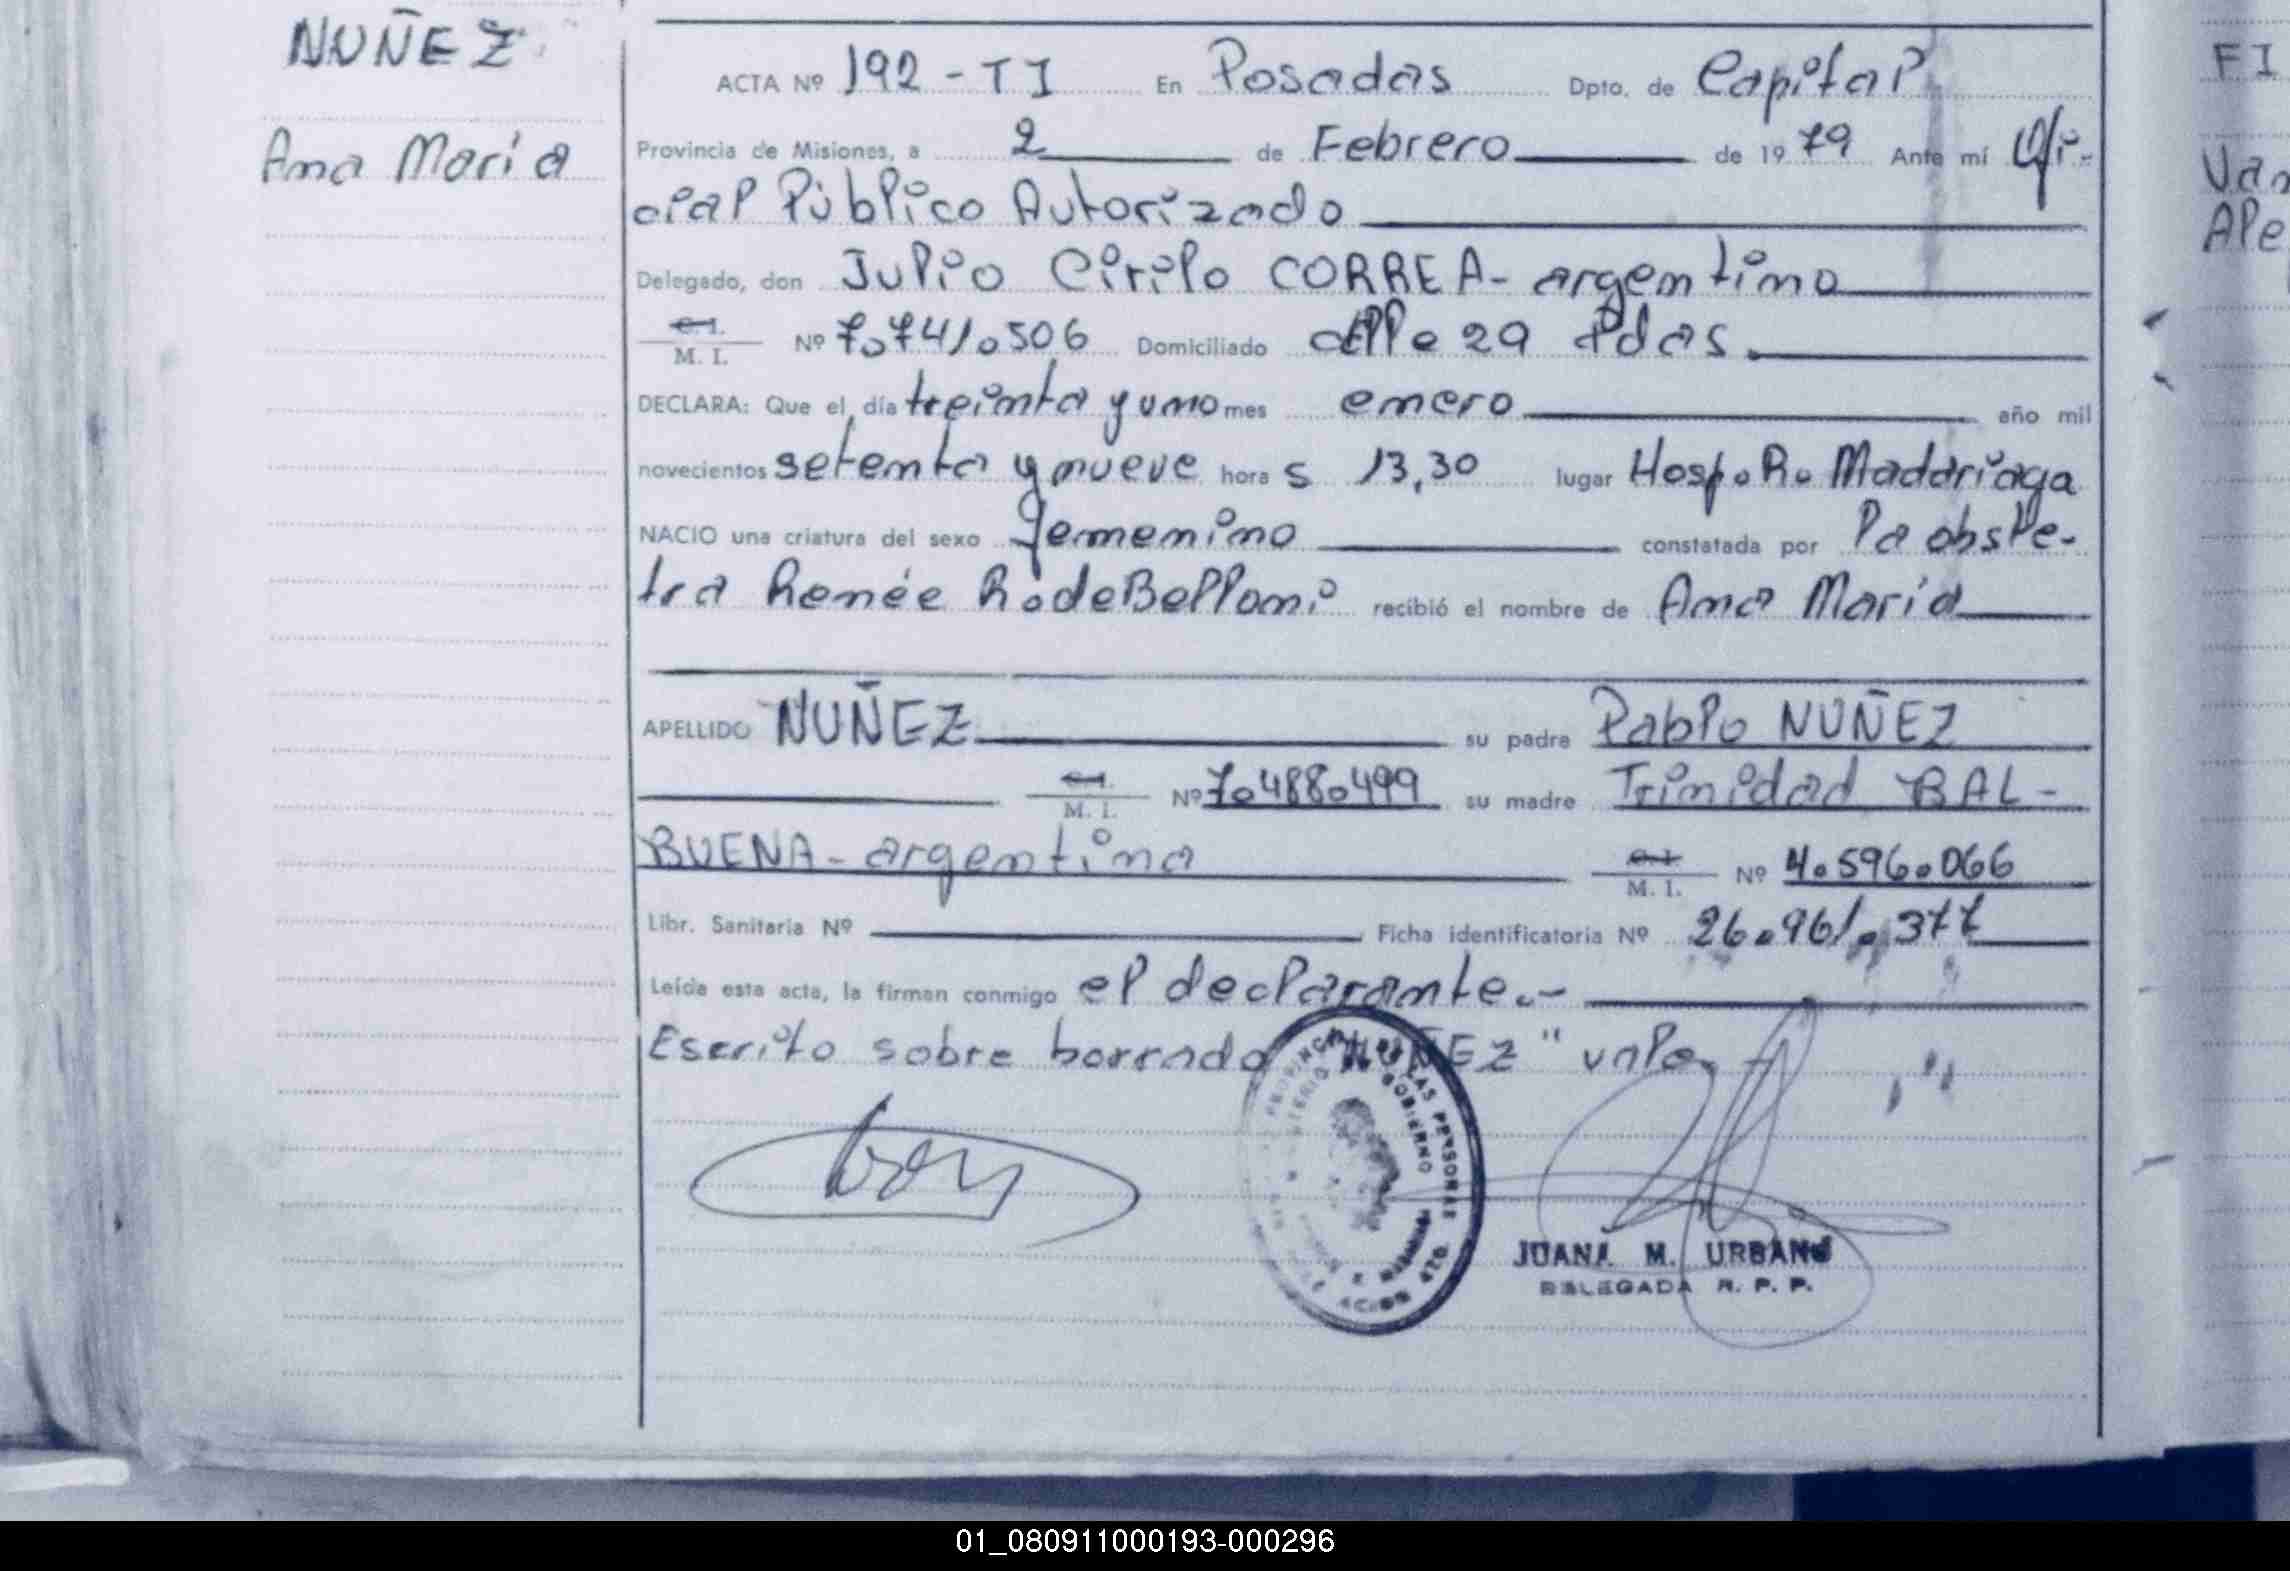 NUÑEZ
Ana María
ACTA Nº 192 - T I En Posadas Dpto. de Capital
Provincia de Misiones, a 2 de Febrero de 1979 Ante mí Ofi-
cial Público Autorizado
Delegado, don Julio Cirilo CORREA - argentino
C. I.
M. I. Nº 7.741.506 Domiciliado 29 Pdas.
DECLARA: Que el día treinta y uno mes enero año mil
novecientos setenta y nueve hora s 13,30 lugar Hosp. R. Madariaga
NACIO una criatura del sexo femenino constatada por la obste-
tra Renée R. de Belloni recibió el nombre de Ana María
APELLIDO NUÑEZ su padre Pablo NUÑEZ
C. I.
M. I. Nº 7.488.499 su madre Trinidad BAL-
BUENA - argentina
C. I.
M. I. Nº 4.596.066
Libr. Sanitaria Nº Ficha identificatoria Nº 26.961.377
Leída esta acta, la firman conmigo el declarante.-
Escrito sobre borrado "NUÑEZ" vale.-
PROVINCIA LAS PERSONAS
GOBIERNO
JUANA M. URBANO
DELEGADA R. P. P.
FI
Van
Ale
01_080911000193-000296